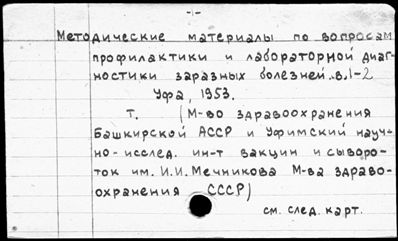 Методические материалы по вопросам
профилактики и лабораторной диаг-
ностики заразных болезней. в.1-2
Уфа, 1953.
т. (М-во здравоохранения
Башкирской АССР и Уфимский науч-
но-исслед. ин-т вакцин и сыворо-
ток им. И.И. Мечникова М-ва здраво-
охранения СССР)
см. след. карт.